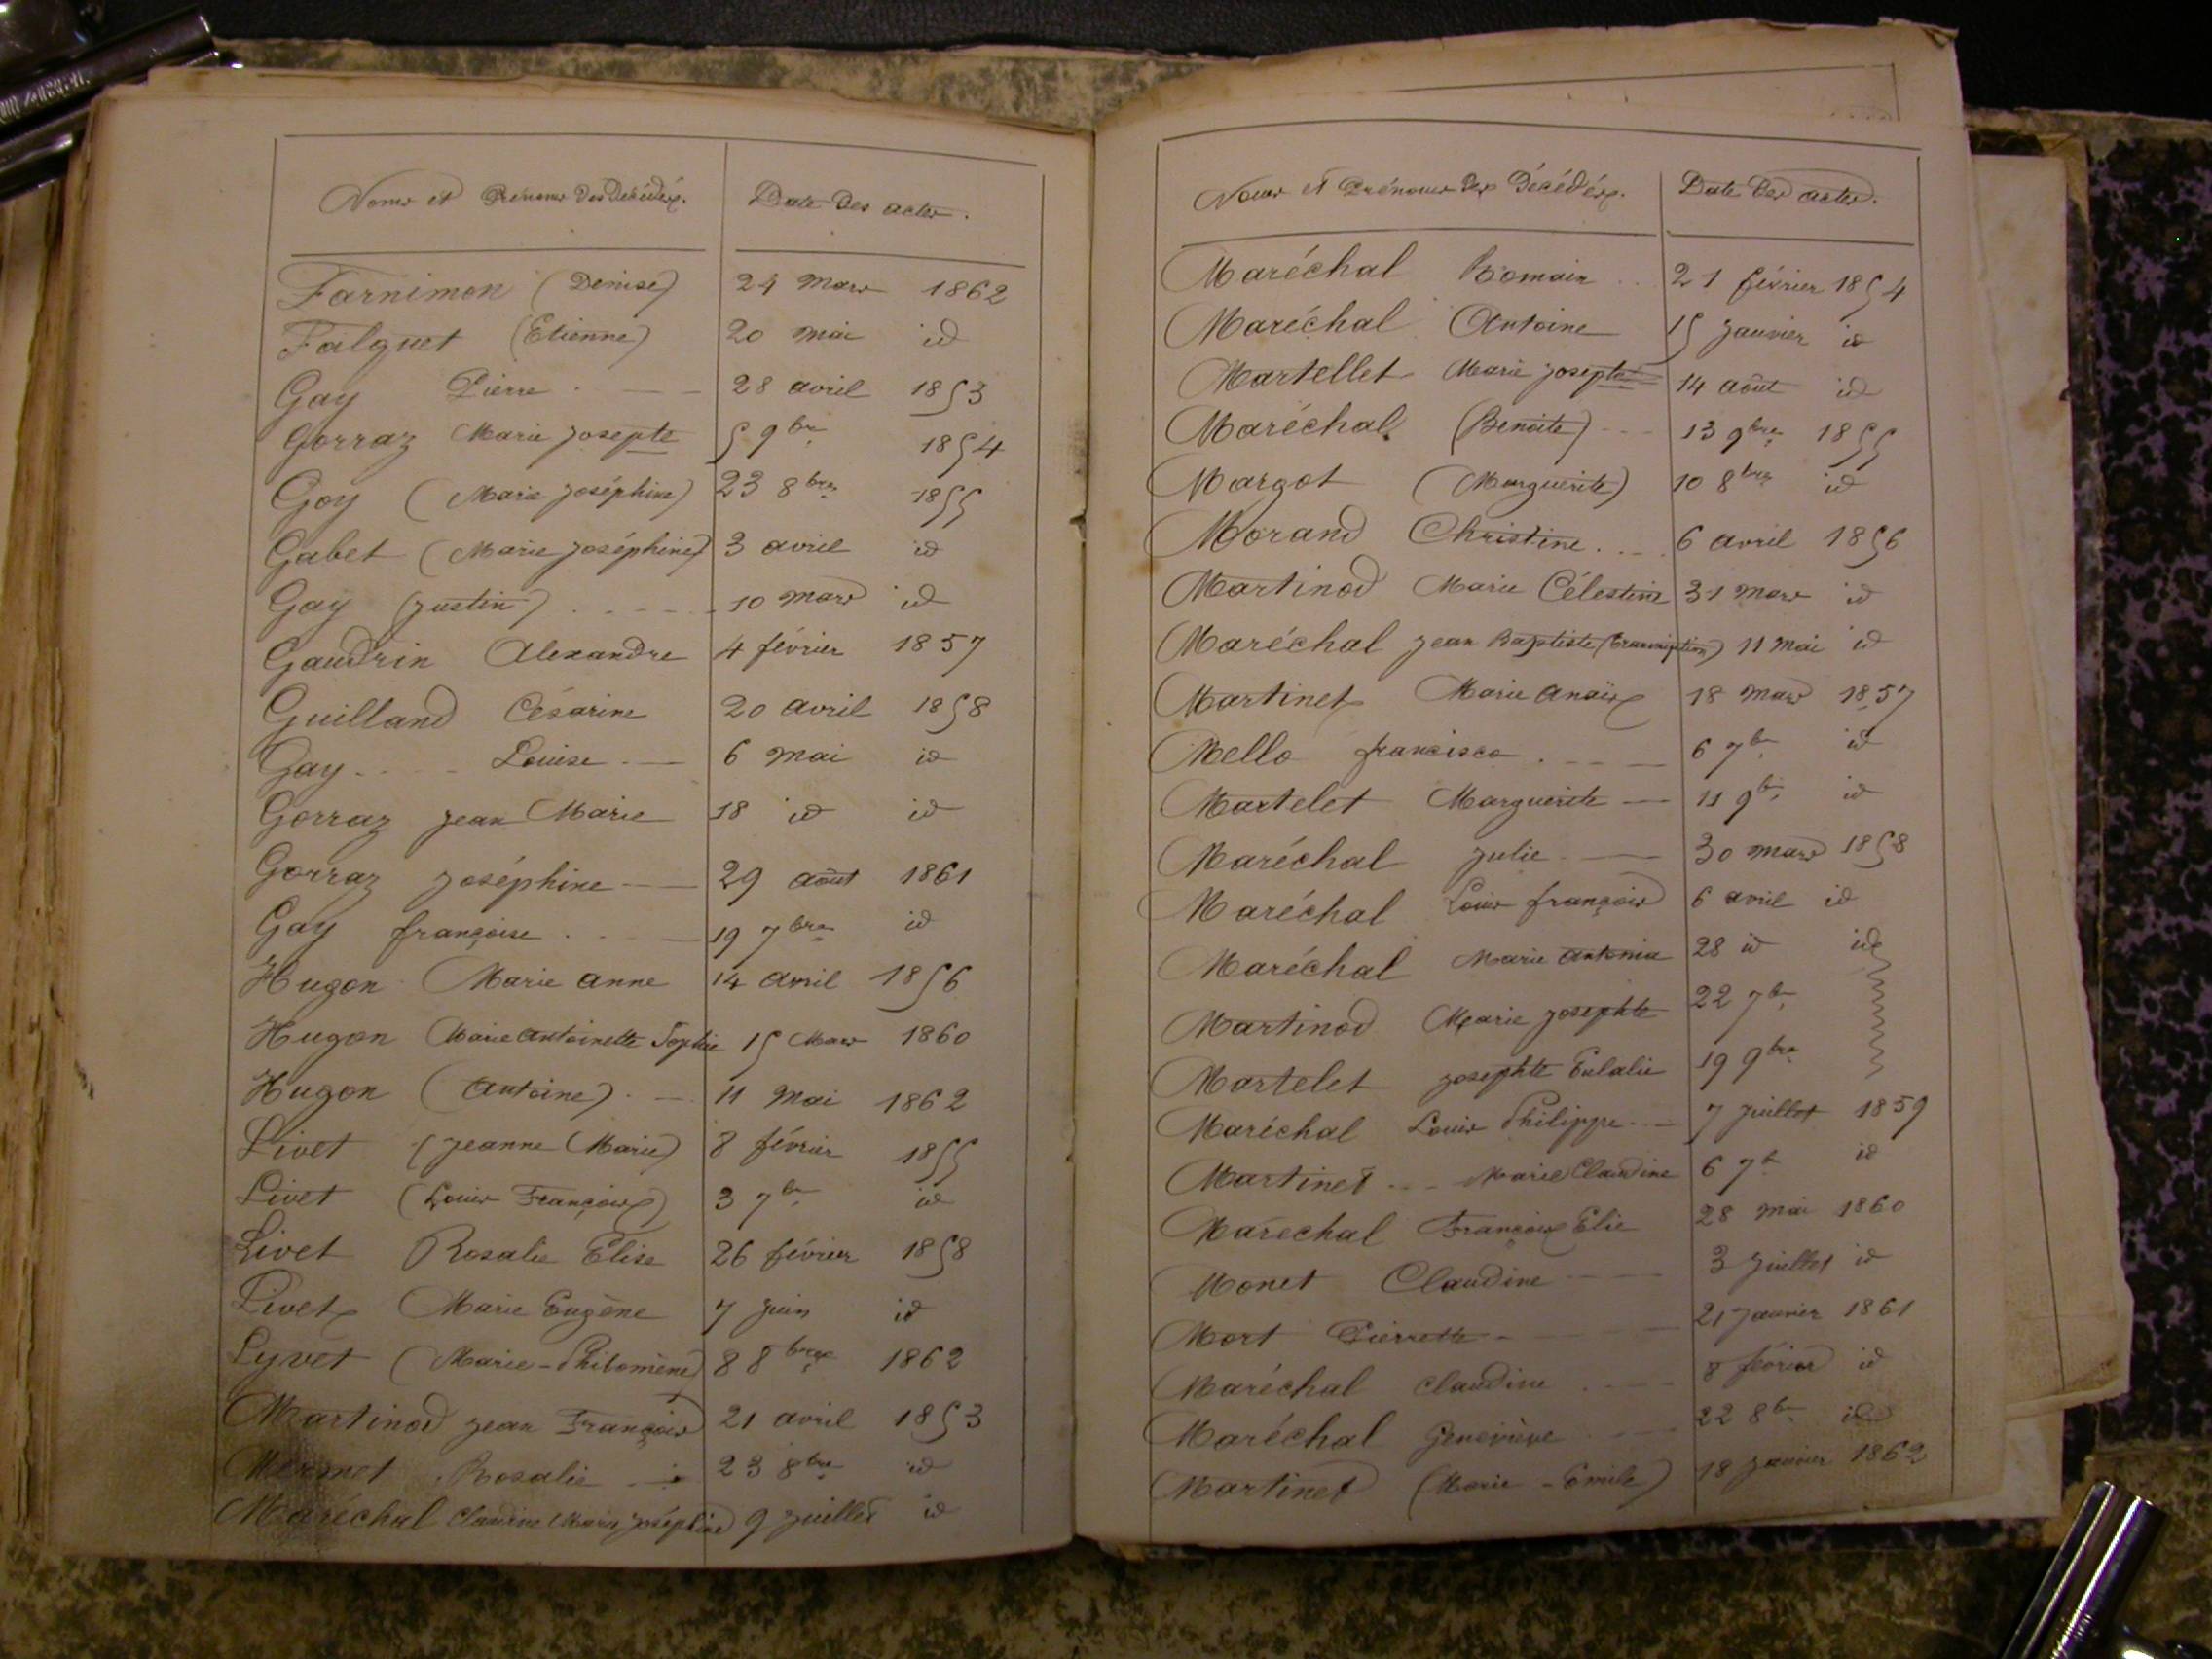 Noms et Prénoms des Décédés. Date des actes.
Farnimon (Denise) 24 Mars 1862
Falguet (Etienne) 20 mai id
Gay Pierre 28 avril 1853
Gorraz Marie Josepte 5 9bre 1854
Goy (Marie Joséphine) 23 8bre 1855
Gabet (Marie Joséphine) 3 avril id
Gay (Justin) 10 Mars id
Gaudrin Alexandre 4 février 1857
Guilland Césarine 20 avril 1858
Gay Louise 6 Mai id
Gorraz Jean Marie 18 id id
Gorraz Joséphine 29 août 1861
Gay françoise 19 7bre id
Hugon Marie anne 14 avril 1856
Hugon Marie Antoinette Sophie 15 Mars 1860
Hugon (Antoine) 11 Mai 1862
Livet (Jeanne Marie) 8 février 1855
Livet (Louis François) 3 7bre id
Livet Rosalie Elise 26 février 1858
Livet Marie Eugène 7 juin id
Lyvet (Marie-Philomène) 8 8bre 1862
Martinod Jean François 21 avril 1853
Mermet Rosalie 23 8bre id
Maréchal Claudine Marie Joséphine 9 Juillet id
Noms et Prénoms des Décédés. Date des actes.
Maréchal Romain 21 février 1854
Maréchal Antoine 15 Janvier id
Martellet Marie Josepte 14 août id
Maréchal (Benoite) 13 9bre 1855
Margot (Marguerite) 10 8bre id
Morand Christine 6 avril 1856
Martinod Marie Célestine 31 Mars id
Maréchal Jean Baptiste (transcription) 11 mai id
Martinet Marie Anaïs 18 Mars 1857
Mello francisco 6 7bre id
Martelet Marguerite 11 9bre id
Maréchal Julie 30 Mars 1858
Maréchal Louis françois 6 avril id
Maréchal Marie Antonia 28 id id
Martinod Marie Josephte 22 7bre
Martelet Josephte Eulalie 19 9bre
Maréchal Louis Philippe 7 Juillet 1859
Martinet Marie Claudine 6 7bre id
Maréchal François Elie 28 Mai 1860
Monet Claudine 3 Juillet id
Mort Pierrette 21 Janvier 1861
Maréchal Claudine 8 février id
Maréchal Geneviève 22 8bre id
Martinet (Marie-Emile) 18 Janvier 1862